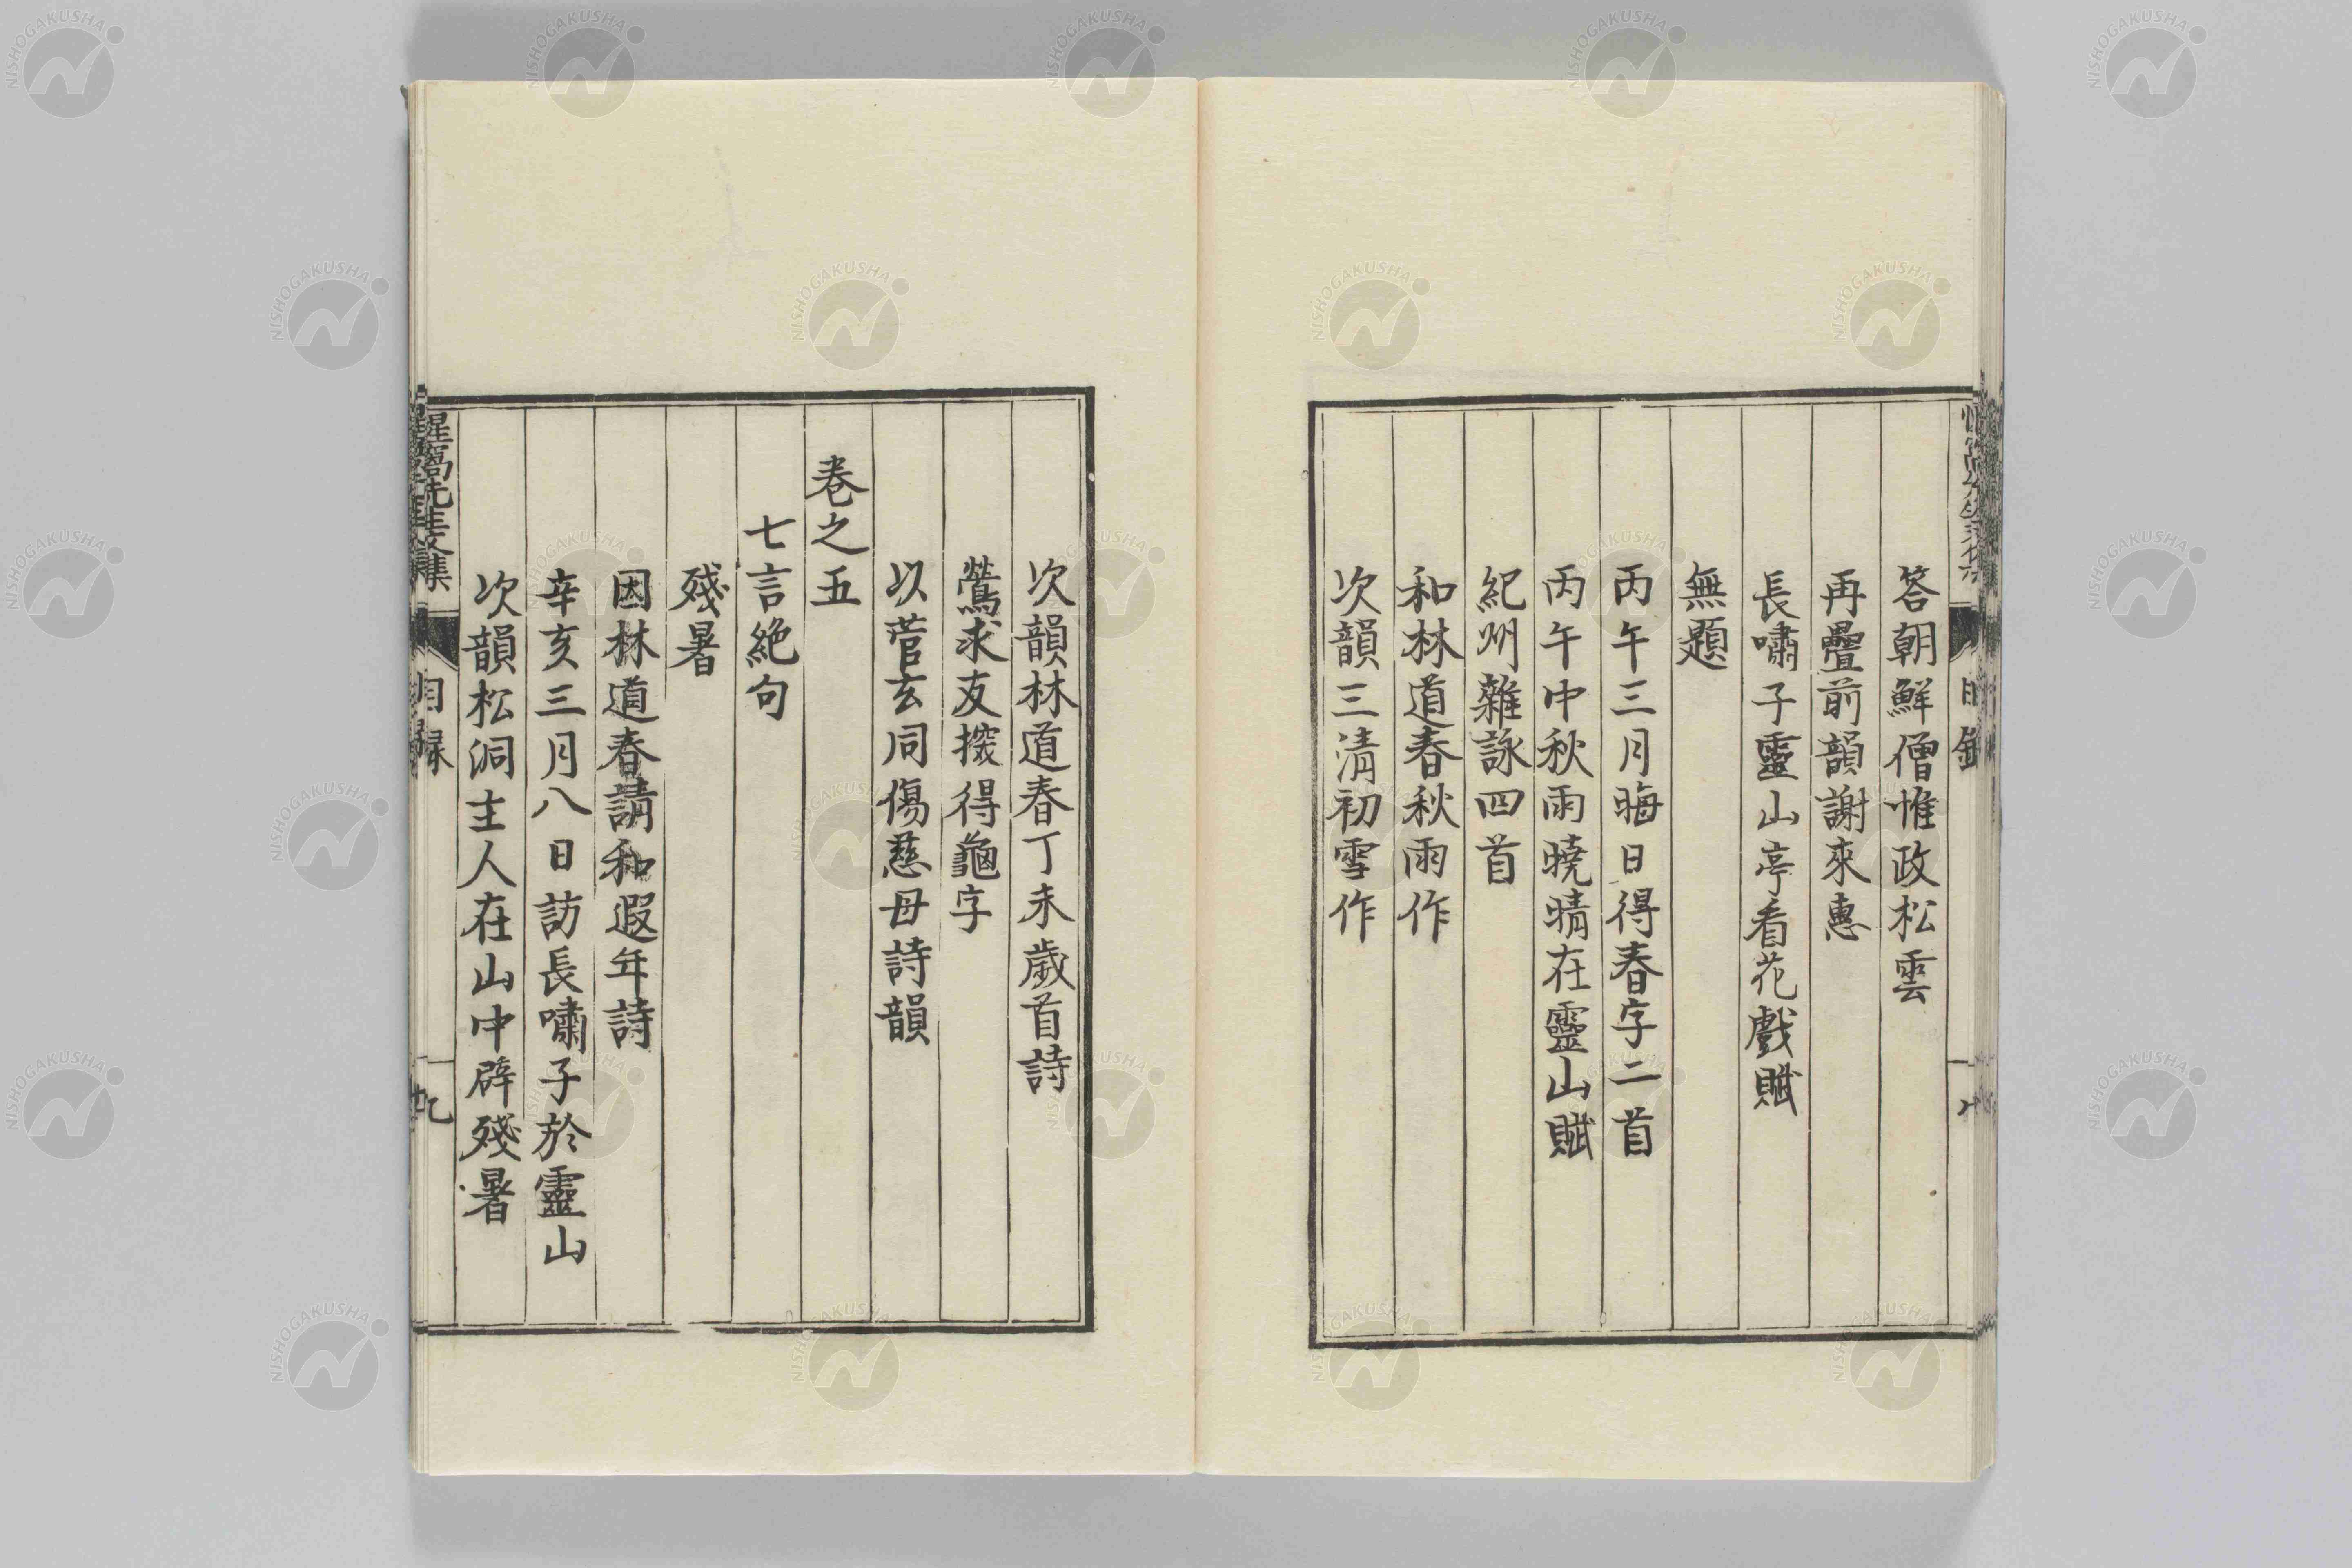 答朝鮮僧惟政松雲
再疊前韻謝來惠
長嘯子靈山亭看花戲賦
無題
丙午三月晦日得春字二首
丙午中秋雨曉晴在靈山賦
紀州雜詠四首
和林道春秋雨作
次韻三淸初雪作
次韻林道春丁未歲首詩
鶯求友探得龜字
以菅玄同傷慈母詩韻
卷之五
七言絶句
殘暑
因林道春請和遐年詩
辛亥三月八日訪長嘯子於靈山
次韻松洞主人在山中辟殘暑
惺窩先生文集
目録
九